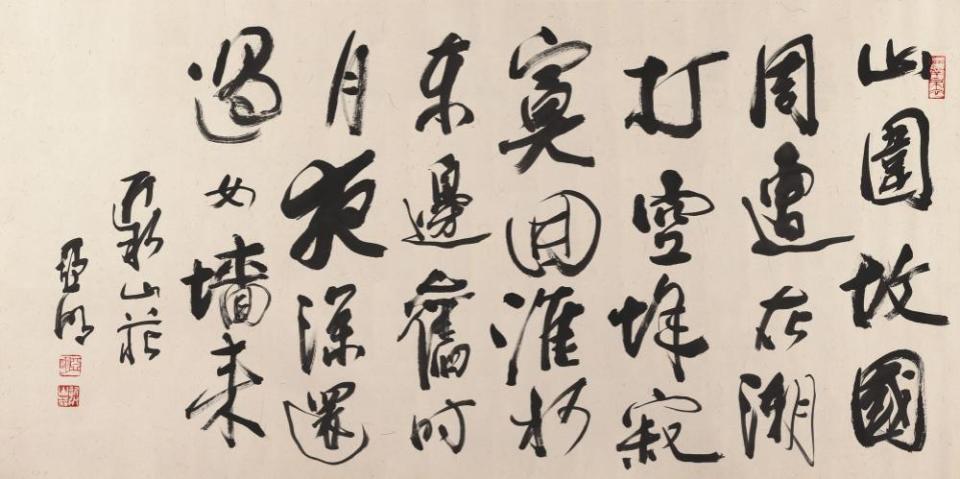 山圍故國
周遭在潮
打空城寂
寞回淮水
東邊舊時
月夜深還
過女墻来
近水山莊
亞明